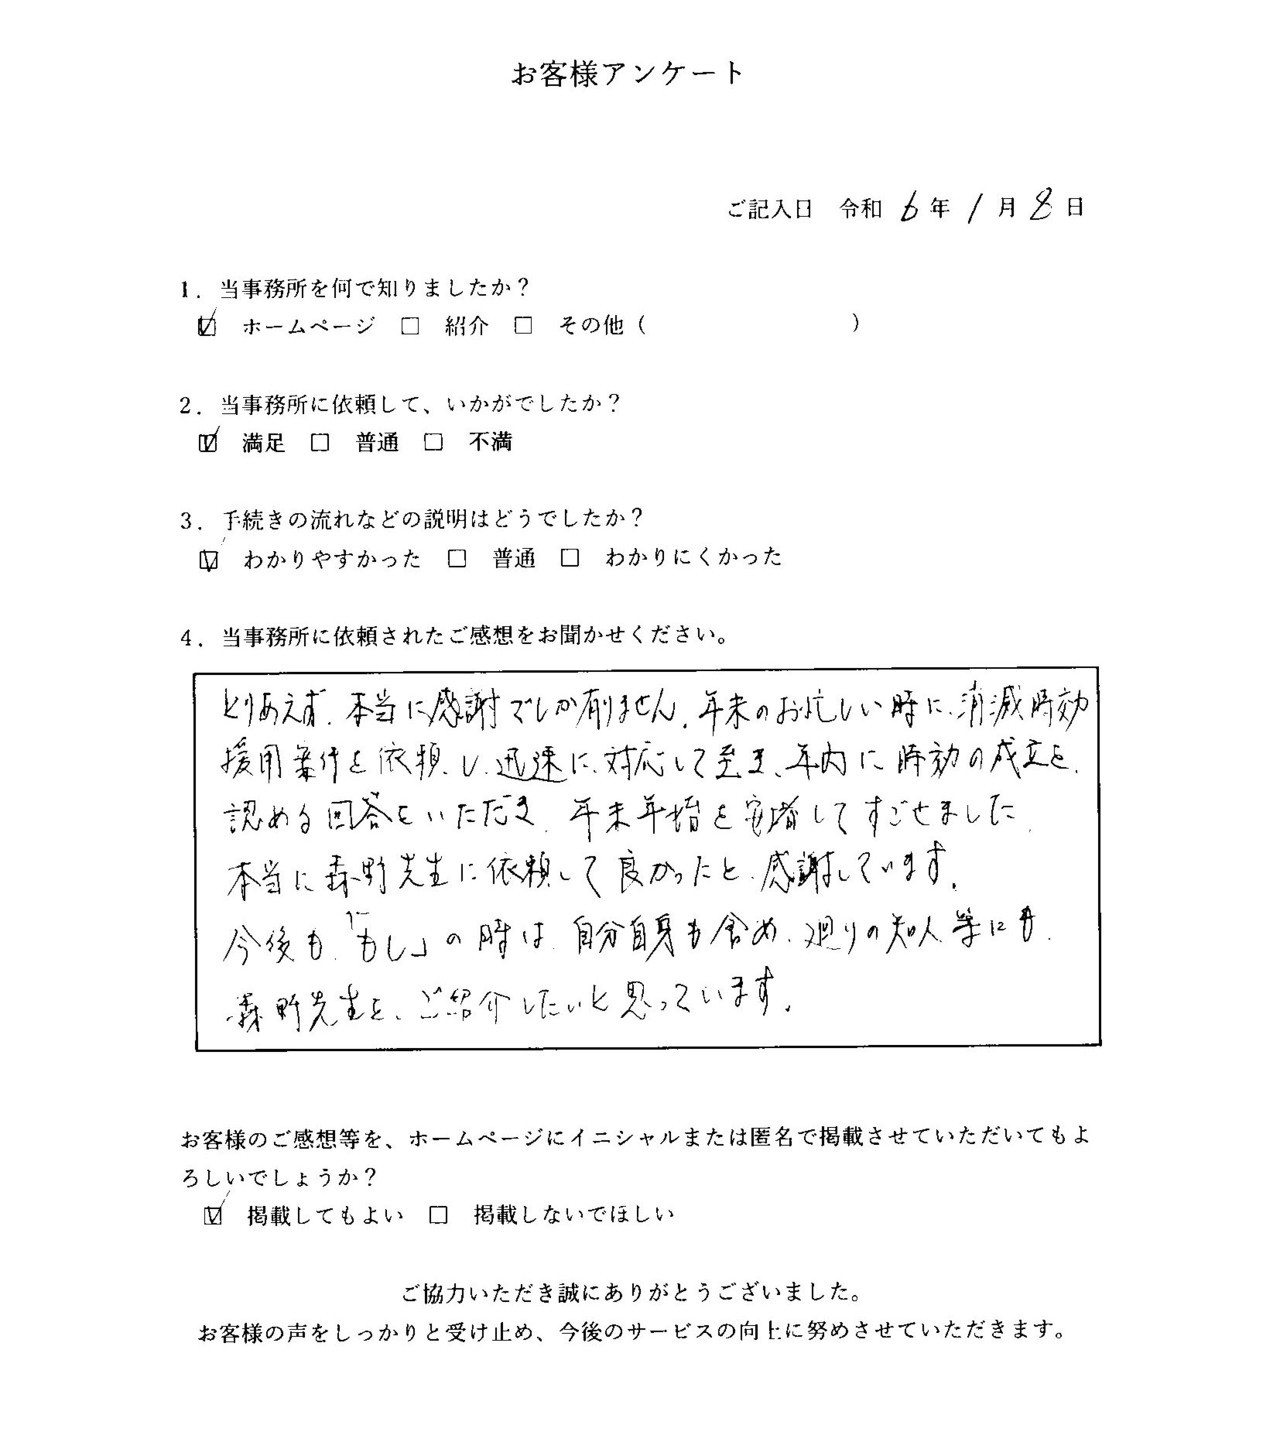 お客様アンケート
ご記入日　令和 6 年 1 月 8 日
1．当事務所を何で知りましたか？
☑　ホームページ　□　紹介　□　その他（　　　　　　　　　）
2．当事務所に依頼して、いかがでしたか？
☑　満足　□　普通　□　不満
3．手続きの流れなどの説明はどうでしたか？
☑　わかりやすかった　□　普通　□　わかりにくかった
4．当事務所に依頼されたご感想をお聞かせください。
とりあえず、本当に感謝でしか有りません。年末のお忙しい時に、消滅時効
援用案件を依頼し、迅速に、対応して頂き、年内に時効の成立を、
認める回答をいただき、年末年始を安堵してすごせました。
本当に森野先生に依頼して良かったと、感謝しています。
今後も、「もし」の時は、自分自身も含め、廻りの知人等にも、
森野先生を、ご紹介したいと思っています。
お客様のご感想等を、ホームページにイニシャルまたは匿名で掲載させていただいてもよ
ろしいでしょうか？
☑　掲載してもよい　□　掲載しないでほしい
ご協力いただき誠にありがとうございました。
お客様の声をしっかりと受け止め、今後のサービスの向上に努めさせていただきます。